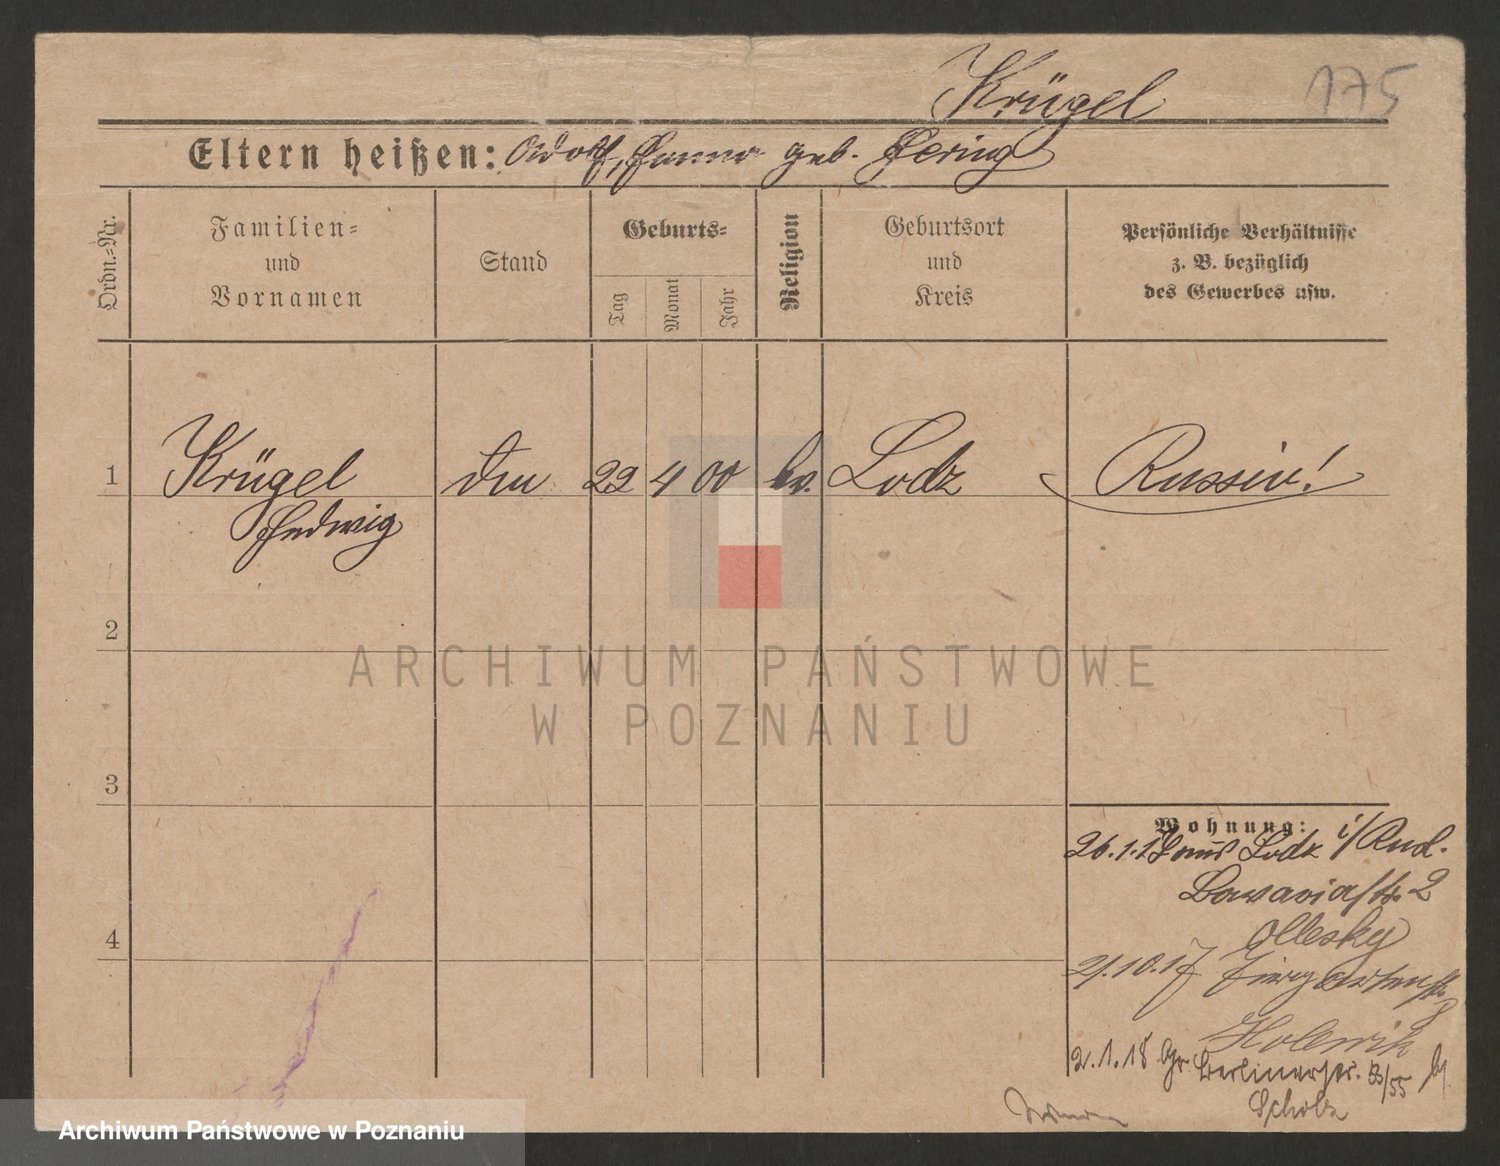 Krügel 175
Eltern heißen: Adolf, Hanna geb. Hering
Ordn.-Nr.
Familien-
und
Vornamen
Stand
Geburts-
Tag
Monat
Jahr
Religion
Geburtsort
und
Kreis
Persönliche Verhältnisse
z. B. bezüglich
des Gewerbes usw.
1 Krügel 22 4 00 ev. Lodz Russin!
Hedwig
2
3
4
Wohnung:
26.1. aus Lodz i/Rußl.
Bavariastr. 2
Ollesky
21.10.17 Tiergartenstr.
2.1.18 Gr. Berlinerstr. 53/55
Scholz
ARCHIWUM PAŃSTWOWE
W POZNANIU
Archiwum Państwowe w Poznaniu